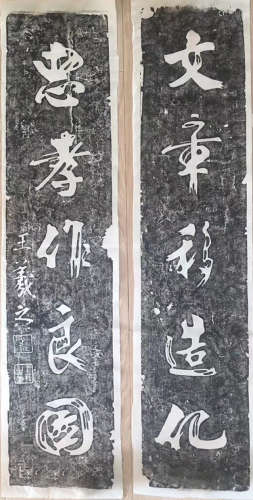 文章移造化
忠孝作良國
王羲之